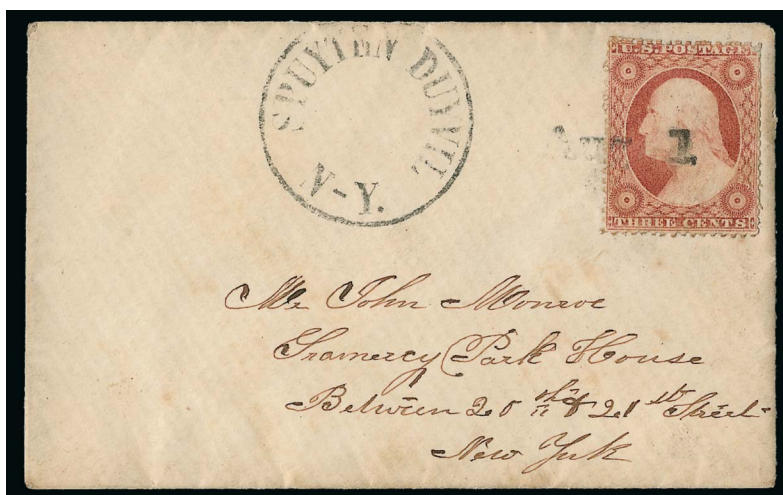 SPUYTEN DUYVIL
N-Y.
U.S. POSTAGE
Aug 1
THREE CENTS
Mr John Monroe
Gramercy Park House
Between 20th & 21st Street
New York